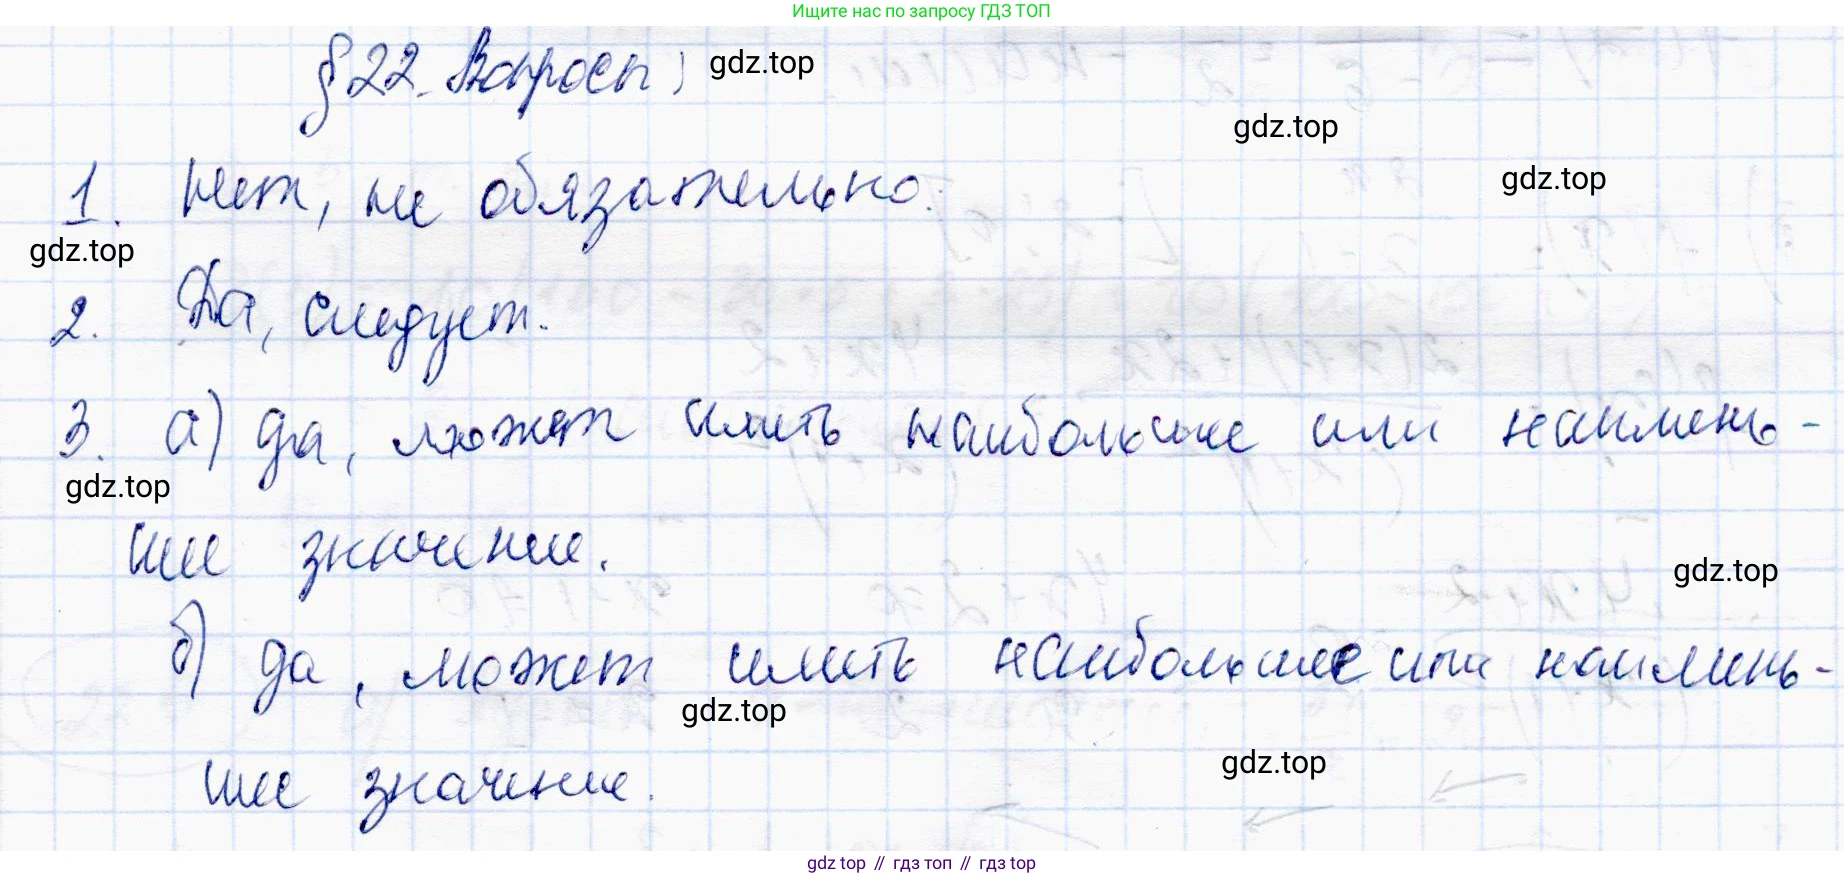 Ищите нас по запросу ГДЗ ТОП
§ 22. Вопросы; gdz.top
gdz.top
1. Нет, не обязательно. gdz.top
gdz.top
2. Да, следует.
3. а) да, может иметь наибольшее или наимень-
gdz.top
шее значение.
gdz.top
б) да, может иметь наибольшее или наимень-
gdz.top
шее значение. gdz.top
gdz top // гдз топ // gdz top